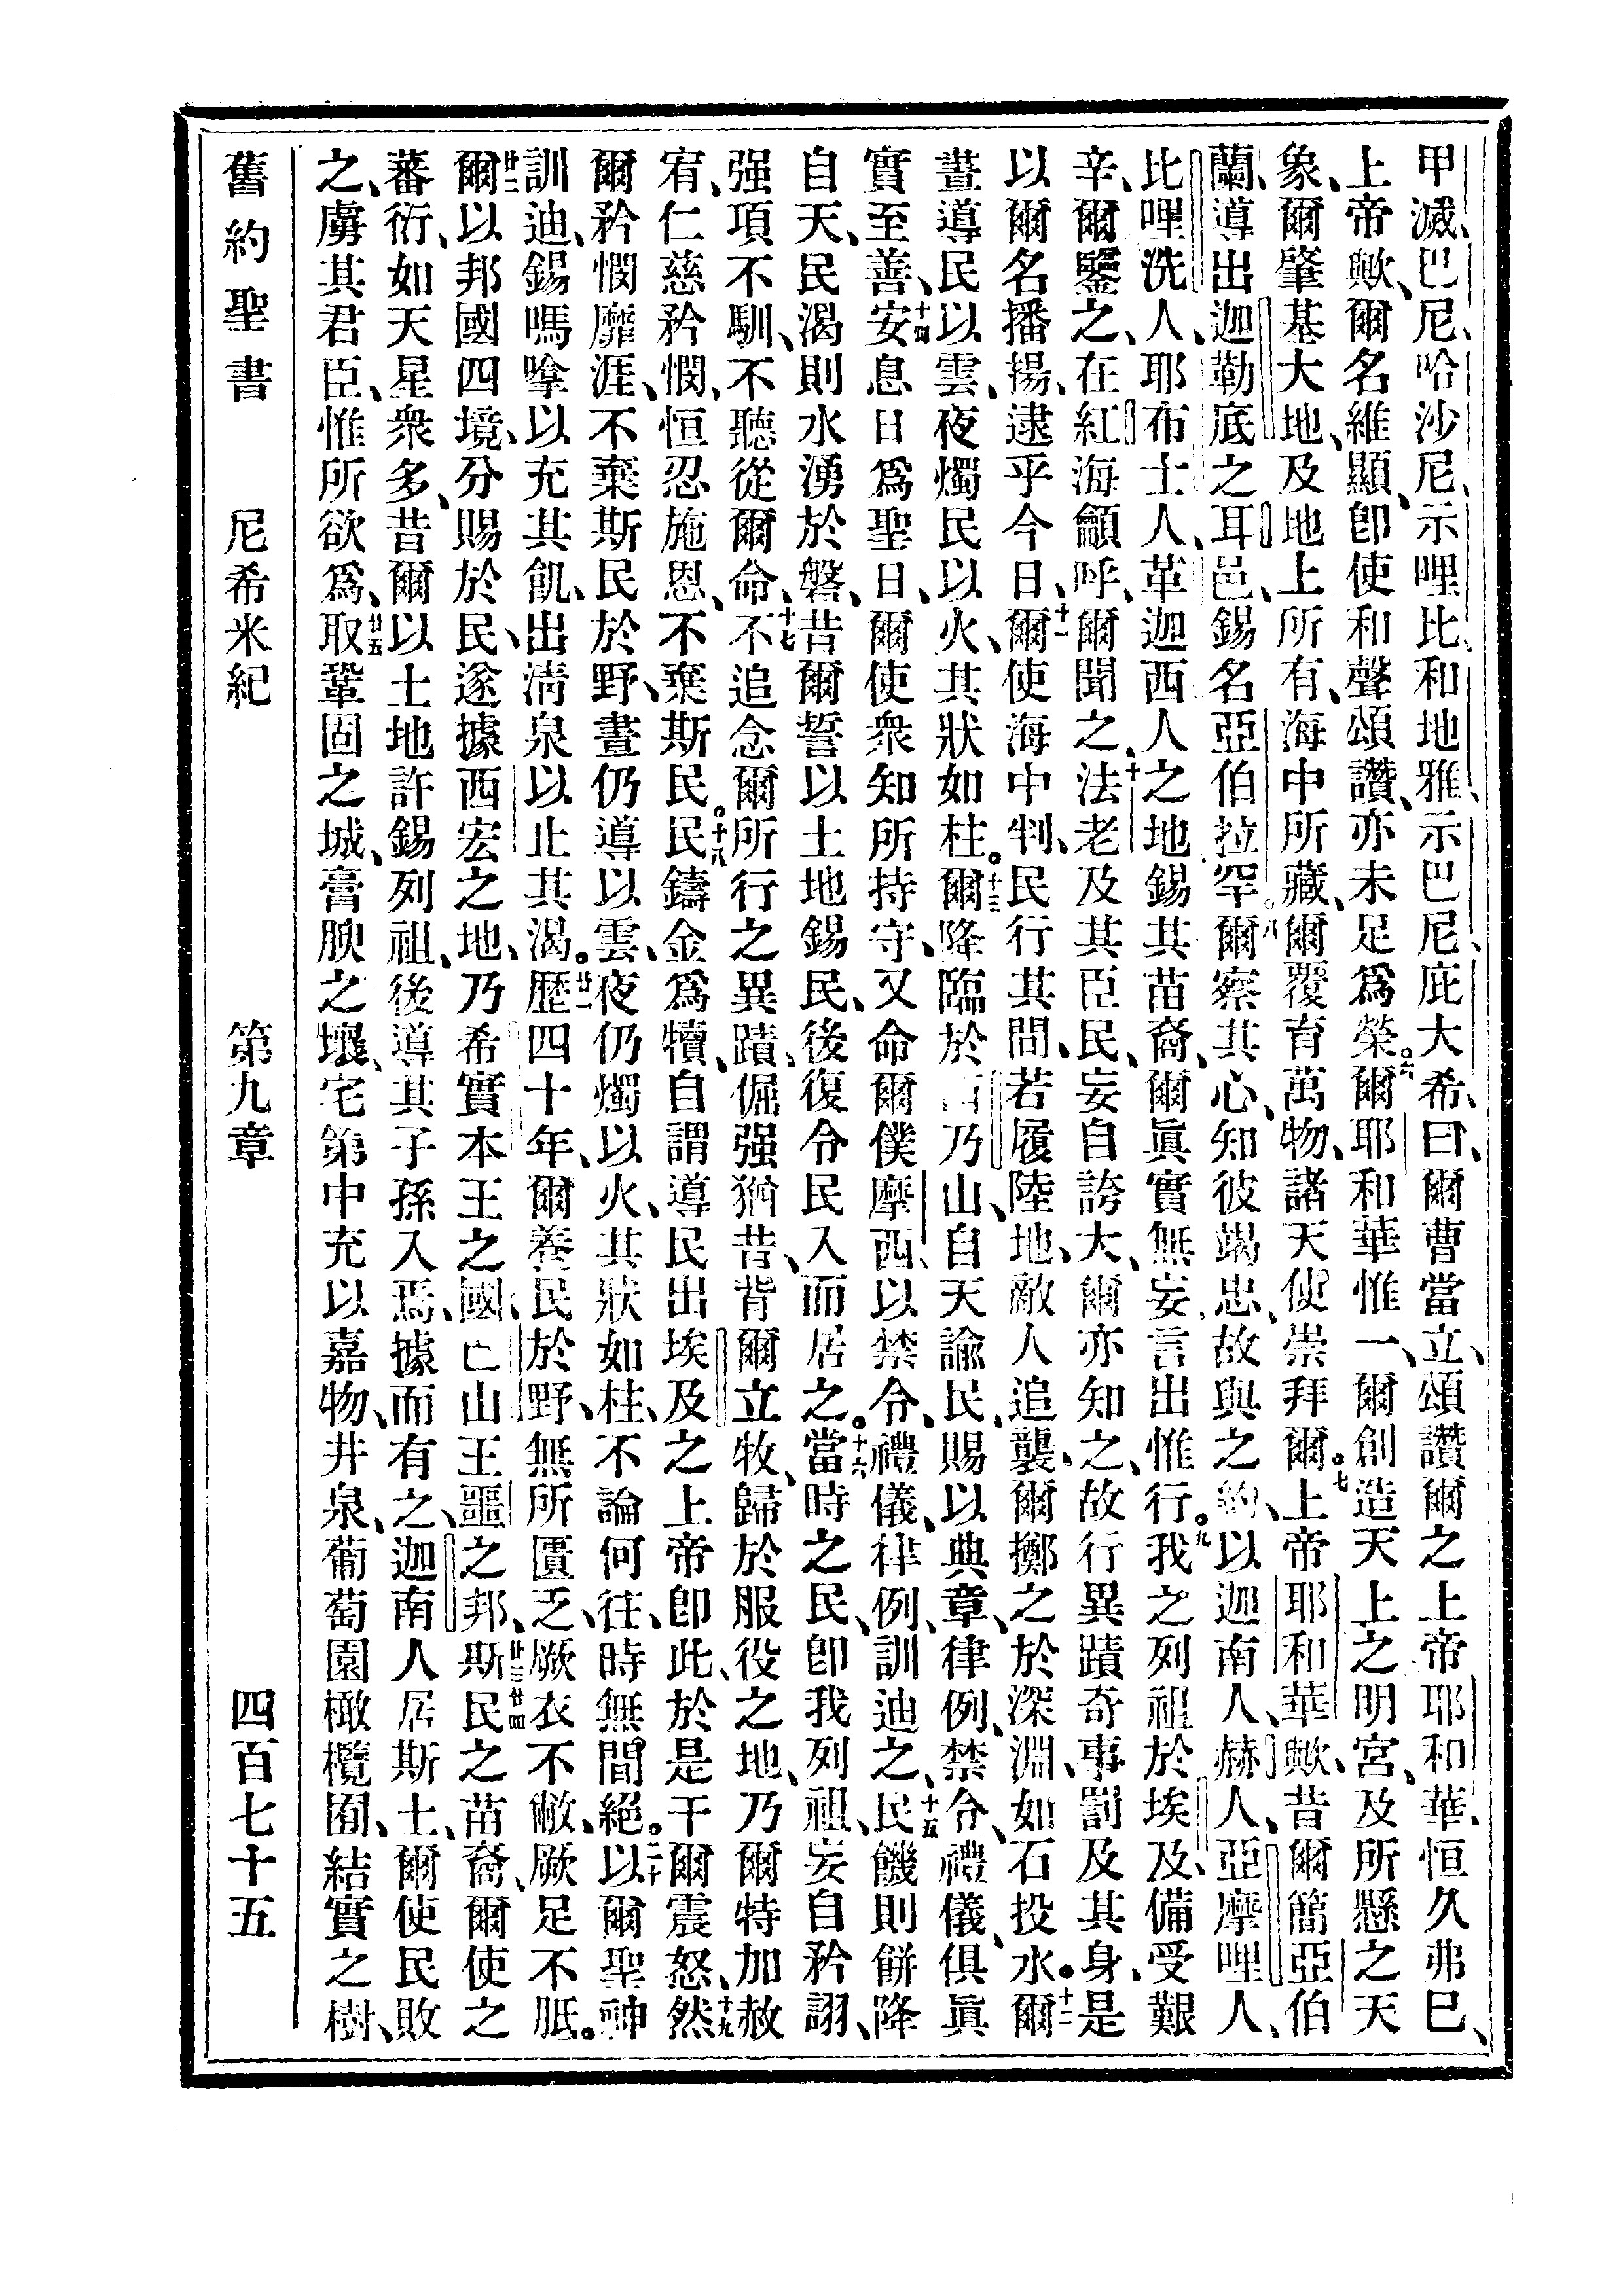 甲滅、巴尼、哈沙尼、示哩比、和地雅、示巴尼、庇大希、曰、爾曹當立、頌讚爾之上帝耶和華、恒久弗已、
上帝歟、爾名維顯、卽使和聲頌讚、亦未足爲榮。六爾耶和華惟一、爾創造天上之明宮、及所懸之天
象、爾肇基大地、及地上所有、海中所藏、爾覆育萬物、諸天使崇拜爾。七上帝耶和華歟、昔爾簡亞伯
蘭、導出迦勒底之耳邑、錫名亞伯拉罕。八爾察其心、知彼竭忠、故與之約、以迦南人、赫人、亞摩哩人、
比哩洗人、耶布士人、革迦西人之地、錫其苗裔、爾眞實無妄、言出惟行。九我之列祖於埃及、備受艱
辛、爾鑒之、在紅海籲呼、爾聞之、十法老及其臣民、妄自誇大、爾亦知之、故行異蹟奇事、罰及其身、是
以爾名播揚、逮乎今日、十一爾使海中判、民行其間、若履陸地、敵人追襲、爾擲之於深淵、如石投水。十二爾
晝導民以雲、夜燭民以火、其狀如柱。十三爾降臨於西乃山、自天諭民、賜以典章、律例、禁令、禮儀、俱眞
實至善、十四安息日爲聖日、爾使衆知所持守、又命爾僕摩西、以禁令、禮儀、律例、訓迪之、十五民饑則餅降
自天、民渴則水湧於磐、昔爾誓以土地錫民、後復令民入而居之。十六當時之民、卽我列祖、妄自矜詡、
强項不馴、不聽從爾命、十七不追念爾所行之異蹟、倔强猶昔、背爾立牧、歸於服役之地、乃爾特加赦
宥、仁慈矜憫、恒忍施恩、不棄斯民。十八民鑄金爲犢、自謂導民出埃及之上帝卽此、於是干爾震怒、十九然
爾矜憫靡涯、不棄斯民於野、晝仍導以雲、夜仍燭以火、其狀如柱、不論何往、時無間絕。二十以爾聖神
訓迪、錫嗎嗱以充其飢、出淸泉以止其渴。廿一歷四十年、爾養民於野、無所匱乏、厥衣不敝、厥足不胝。
廿二爾以邦國四境、分賜於民、遂據西宏之地、乃希實本王之國、亡山王噩之邦、廿三廿四斯民之苗裔、爾使之
蕃衍、如天星衆多、昔爾以土地許錫列祖、後導其子孫入焉、據而有之、迦南人居斯土、爾使民敗
之、虜其君臣、惟所欲爲、廿五取鞏固之城、膏腴之壤、宅第中充以嘉物、井泉、葡萄園、橄欖囿、結實之樹、
舊約聖書 尼希米紀 第九章 四百七十五